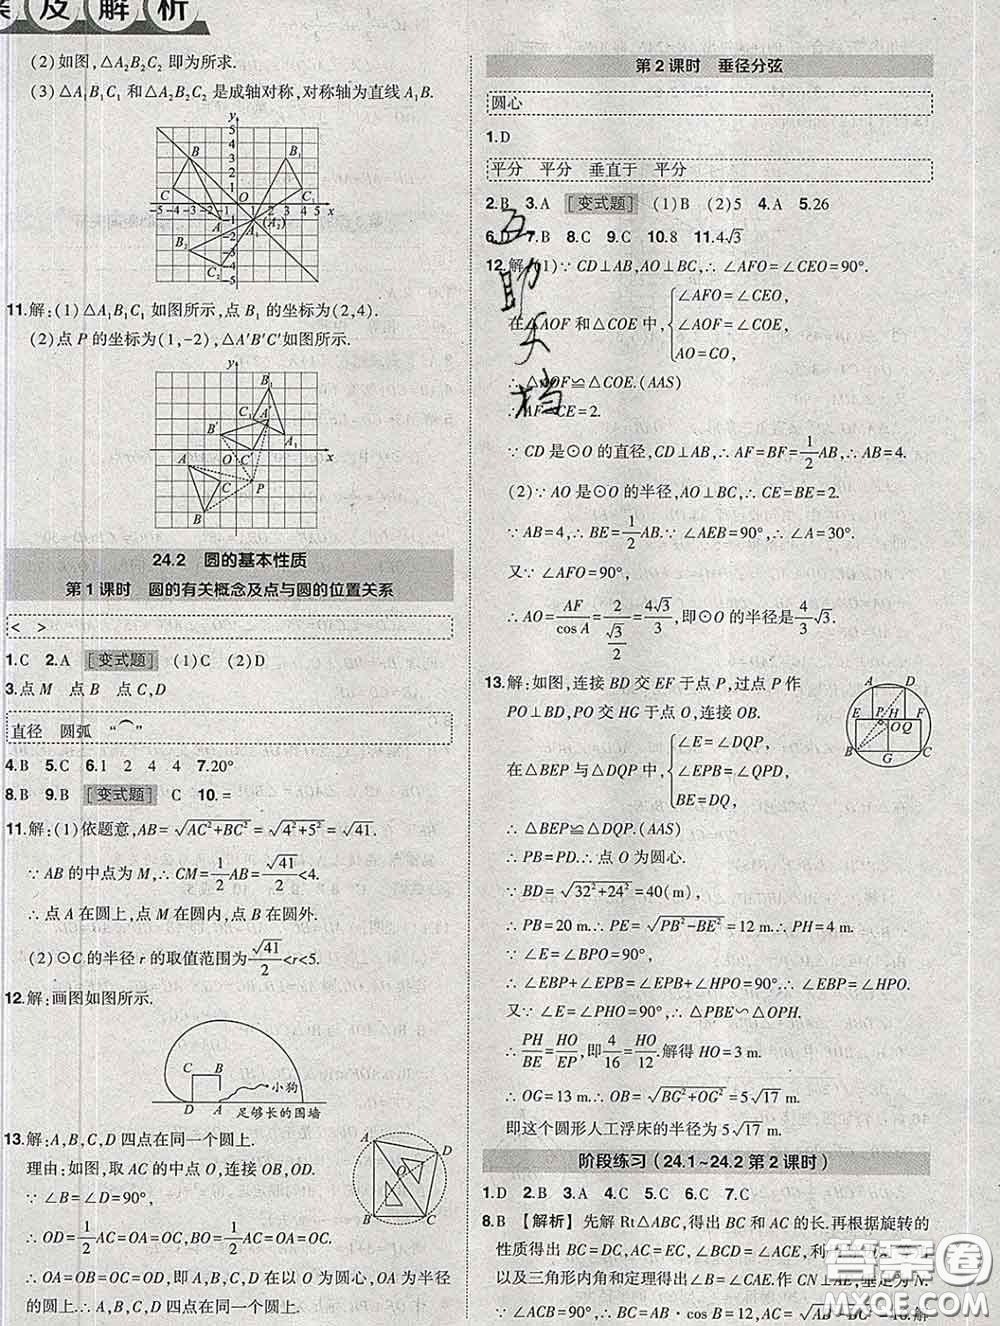 案及解析
(2)如图,△A₂B₂C₂ 即为所求.
(3)△A₁B₁C₁ 和△A₂B₂C₂ 是成轴对称,对称轴为直线 A₁B.
11.解:(1)△A₁B₁C₁ 如图所示,点 B₁ 的坐标为(2,4).
(2)点 P 的坐标为(1,-2),△A'B'C'如图所示.
24.2 圆的基本性质
第1课时 圆的有关概念及点与圆的位置关系
< >
1.C 2.A [变式题] (1)C (2)D
3.点 M 点 B 点 C,D
直径 圆弧 “⌒”
4.B 5.C 6.1 2 4 4 7.20°
8.B 9.B [变式题] C 10.=
11.解:(1)依题意,AB=√(AC²+BC²)=√(4²+5²)=√41.
∵AB 的中点为 M,∴CM=1/2 AB=√41/2<4.
∴点 A 在圆上,点 M 在圆内,点 B 在圆外.
(2)⊙C 的半径 r 的取值范围为 √41/2<r<5.
12.解:画图如图所示.
C B 小狗
D A 足够长的围墙
13.解:A,B,C,D 四点在同一个圆上.
理由:如图,取 AC 的中点 O,连接 OB,OD.
∵∠B=∠D=90°,
∴OD=1/2 AC=OA=OC,OB=1/2 AC=OA=OC.
∴OA=OB=OC=OD,即 A,B,C,D 在以 O 为圆心,OA 为半径
的圆上.∴A,B,C,D 四点在同一个圆上.
第2课时 垂径分弦
圆心
1.D
平分 平分 垂直于 平分
2.B 3.A [变式题] (1)B (2)5 4.A 5.26
6.D 7.B 8.C 9.C 10.8 11.4√3
12.解:(1)∵CD⊥AB,AO⊥BC,∴∠AFO=∠CEO=90°.
在△AOF 和△COE 中,{∠AFO=∠CEO, ∠AOF=∠COE, AO=CO,
∴△AOF≌△COE.(AAS)
∴AF=CE=2.
∵CD 是⊙O 的直径,CD⊥AB,∴AF=BF=1/2 AB,∴AB=4.
(2)∵AO 是⊙O 的半径,AO⊥BC,∴CE=BE=2.
∵AB=4,∴BE=1/2 AB.∵∠AEB=90°,∴∠A=30°.
又∵∠AFO=90°,
∴AO=AF/cos A=2/(√3/2)=4√3/3,即⊙O 的半径是 4/3 √3.
13.解:如图,连接 BD 交 EF 于点 P,过点 P 作
PO⊥BD,PO 交 HG 于点 O,连接 OB.
在△BEP 与△DQP 中,{∠E=∠DQP, ∠EPB=∠QPD, BE=DQ,
∴△BEP≌△DQP.(AAS)
∴PB=PD.∴点 O 为圆心.
∵BD=√(32²+24²)=40(m),
∴PB=20 m.∴PE=√(PB²-BE²)=12 m.∴PH=4 m.
∵∠E=∠BPO=90°,
∴∠EBP+∠EPB=∠EPB+∠HPO.∴∠EBP=∠HPO.
又∵∠E=∠PHO=90°,∴△PBE∽△OPH.
∴PH/BE=HO/EP,即4/16=HO/12.解得 HO=3 m.
∴OG=13 m.∴OB=√(BG²+OG²)=5√17 m.
即这个圆形人工浮床的半径为 5√17 m.
阶段练习(24.1~24.2 第2课时)
1.D 2.B 3.A 4.C 5.C 6.C 7.C
8.B 【解析】先解 Rt△ABC,得出 BC 和 AC 的长.再根据旋转的
性质得出 BC=DC,AC=EC,∠BCD=∠ACE,利
以及三角形内角和定理得出∠B=∠CAE.作 CN⊥AE,垂足为 N.
∵∠ACB=90°,∴BC=AB·cos B=12,AC=
互助文档
答案圈
MXQE.COM